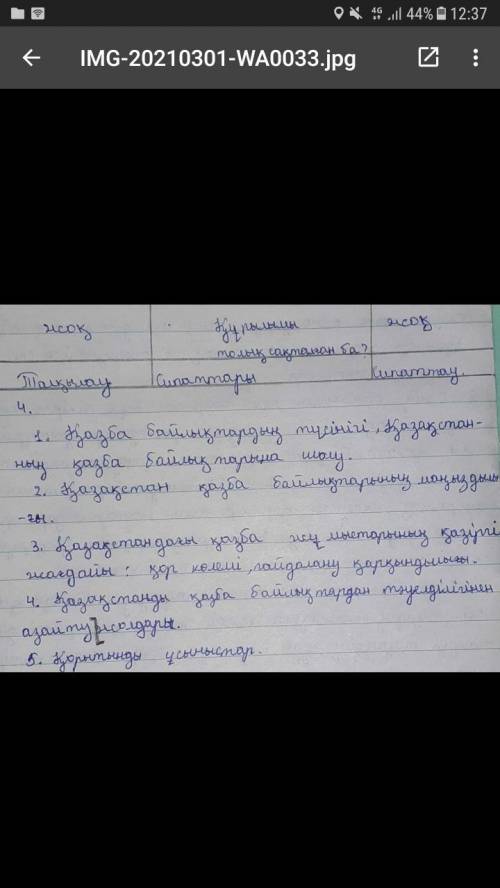 4G 44% 12:37
IMG-20210301-WA0033.jpg
жоқ Құрылымы жоқ
толық сақталған ба?
Талқылау Сипаттары Сипаттау.
4.
1. Қазба байлықтардың түсінігі, Қазақстан-
ның қазба байлықтарына шолу.
2. Қазақстан қазба байлықтарының маңыздылы
-ғы.
3. Қазақстандағы қазба жұмыстарының қазіргі
жағдайы: қор көлемі, пайдалану қарқындылығы.
4. Қазақстанды қазба байлықтардан тәуелділігінен
азайту жолдары.
5. Қорытынды ұсыныстар.